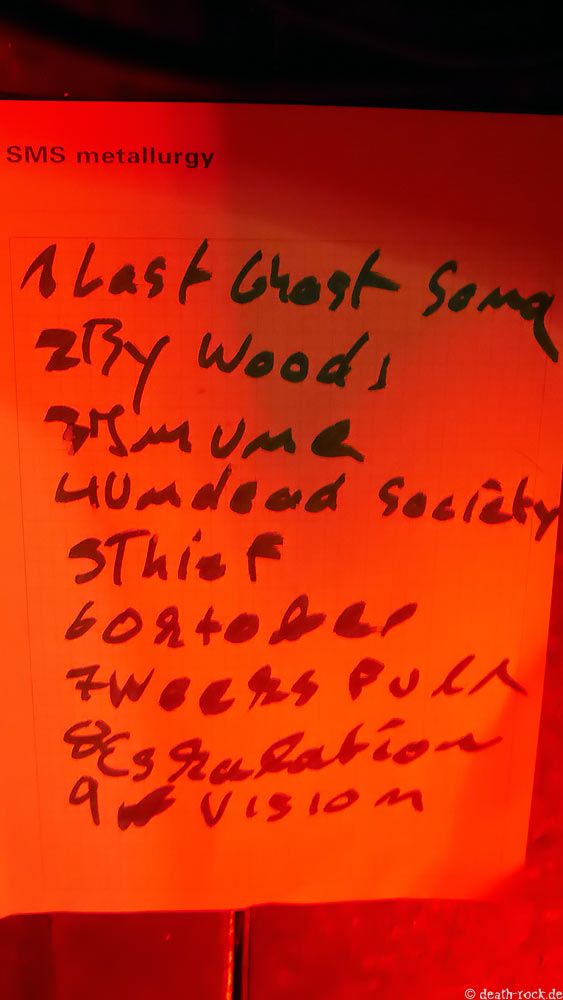 SMS metallurgy
1 Last Ghost Song
2 By Woods
3
4 Undead Society
5 Thief
6 Oktober
7 Weeks
8 Eskalation
9 Vision
© death-rock.de